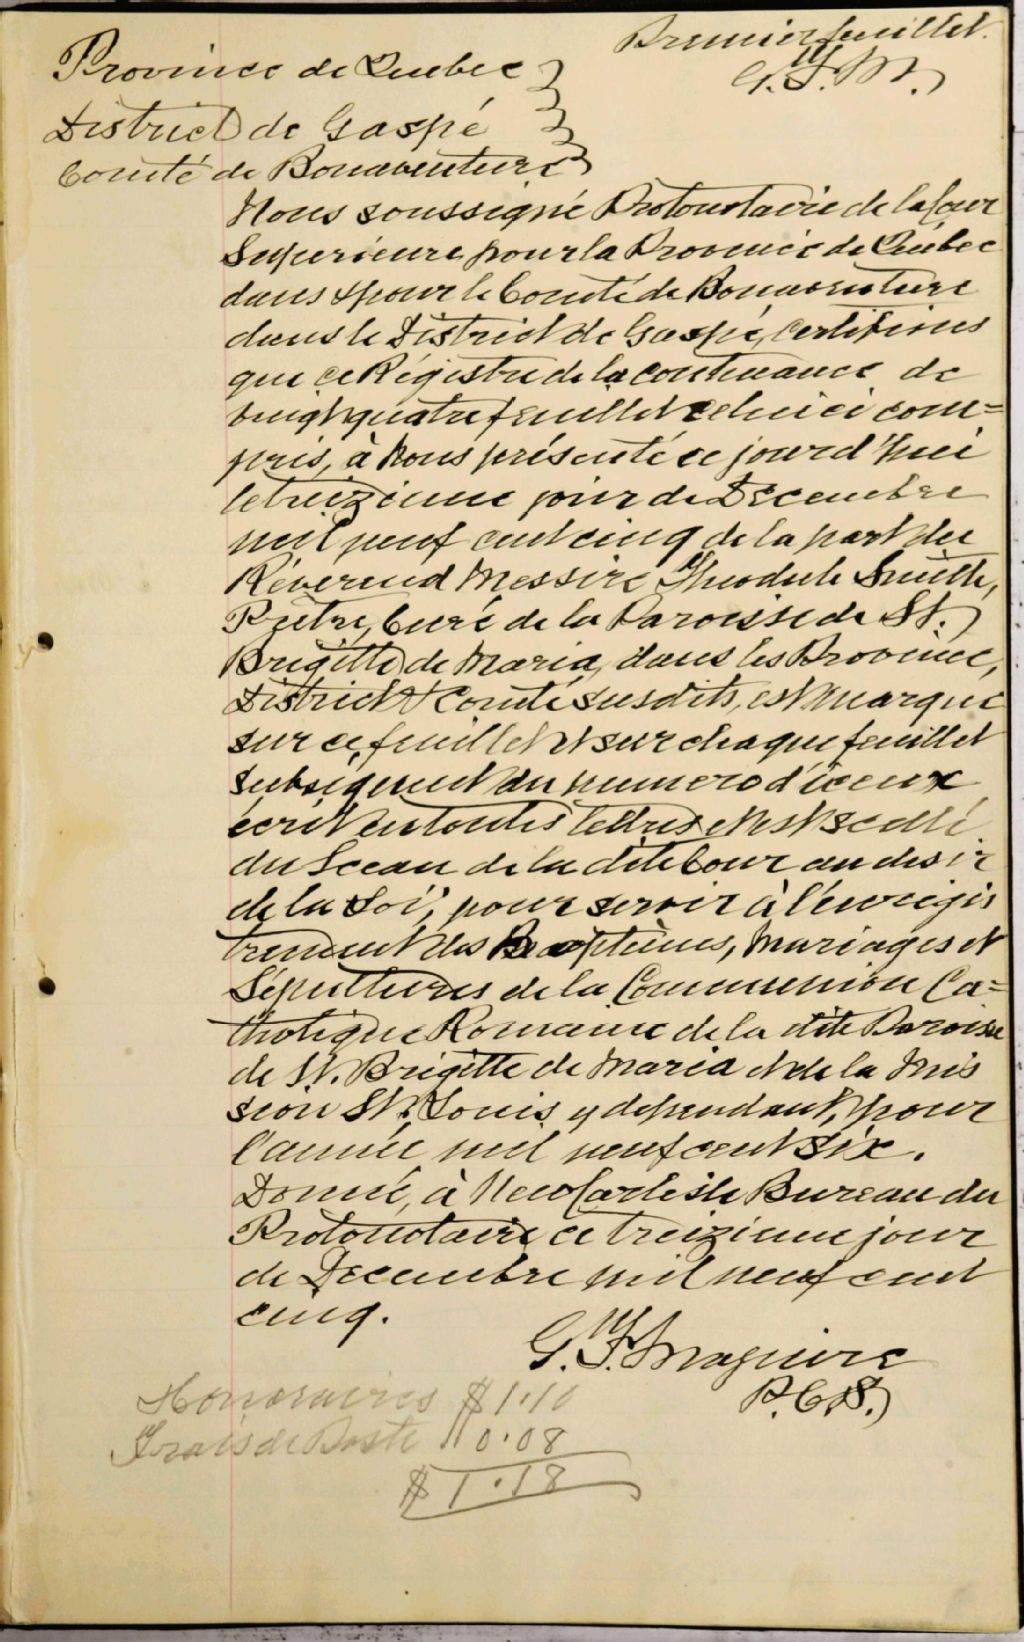 Premier feuillet.
G. F. M.
Province de Quebec
District de Gaspé
Comté de Bonaventure
Nous soussigné Protonotaire de la Cour
Superieure pour la Province de Québec
dans & pour le Comté de Bonaventure
dans le District de Gaspé, certifions
que ce Régistre de la contenance de
vingt quatre feuillet celui ci com=
pris, à Nous présenté ce jourd'hui
le treizieme jour de Décembre
mil neuf cent cinq de la part du
Révérend Messire Theodule Smith,
Prêtre, Curé de la Paroisse de St.
Brigitte de Maria, dans les Province,
District & Comté susdits, est marqué
sur ce feuillet et sur chaque feuillet
subséquent du numero d'iceux
écrit en toutes lettres et est scellé
du Sceau de la dite Cour au desir
de la Loi, pour servir à l'enrégis
trement des Baptêmes, Mariages et
Sépultures de la Communion Ca=
tholique Romaine de la dite Paroisse
de St. Brigitte de Maria et de la Mis
sion St. Louis y dépendant, pour
l'année mil neuf cent six.
Donné, à New Carlisle Bureau du
Protonotaire ce treizieme jour
de Décembre mil neuf cent
cinq.
G. F. Maguire
P. C. S.
Honoraires $1.10
Frais de Poste " 0.08
$1.18